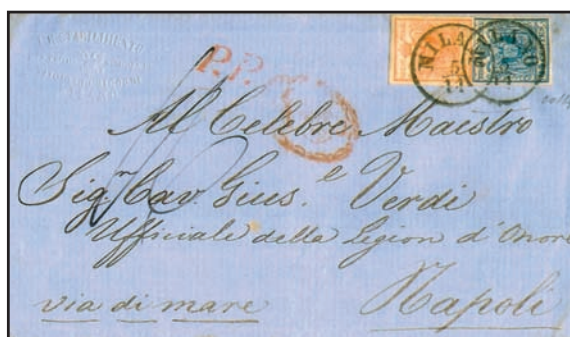 P.P.
MILANO
MILANO
Al Celebre Maestro
Sig.r Cav. Gius.e Verdi
Ufficiale della Legion d'Onore
via di mare
Napoli